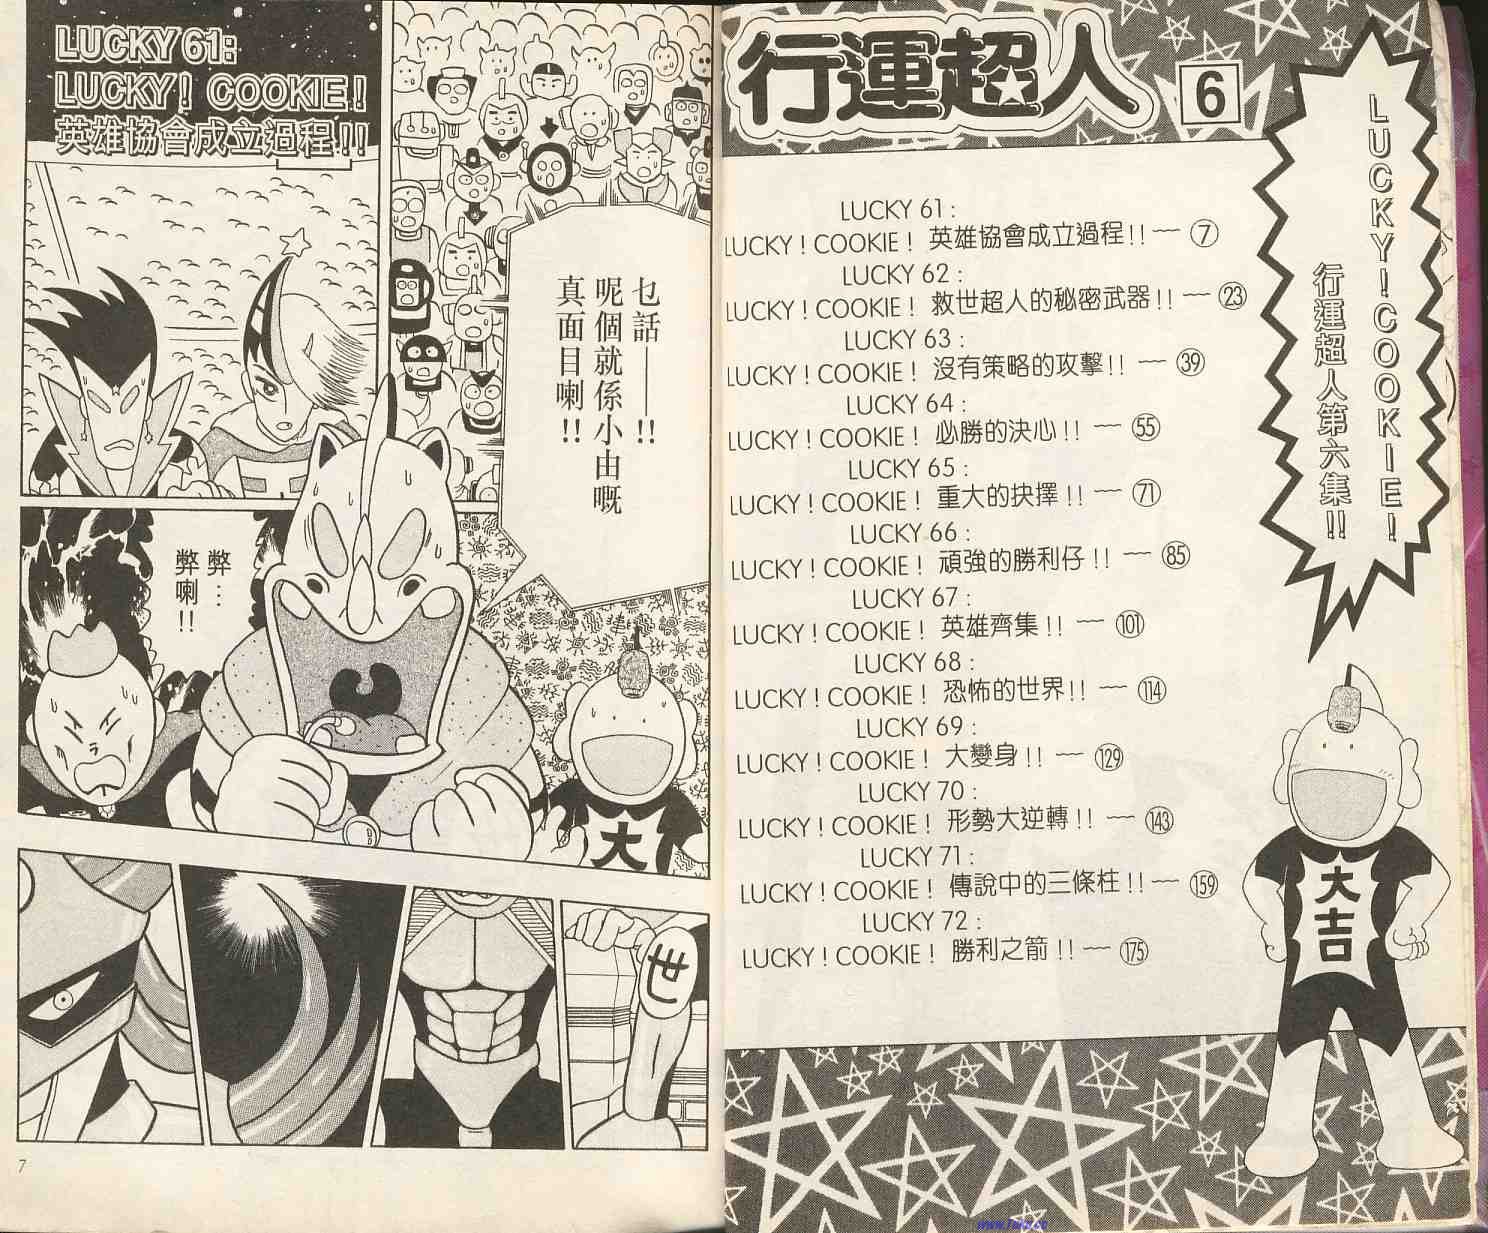 行運超人 6
LUCKY!COOKIE!
行運超人第六集!!
LUCKY 61:
LUCKY!COOKIE! 英雄協會成立過程!!~ 7
LUCKY 62:
LUCKY!COOKIE! 救世超人的秘密武器!!~ 23
LUCKY 63:
LUCKY!COOKIE! 沒有策略的攻擊!!~ 39
LUCKY 64:
LUCKY!COOKIE! 必勝的決心!!~ 55
LUCKY 65:
LUCKY!COOKIE! 重大的抉擇!!~ 71
LUCKY 66:
LUCKY!COOKIE! 頑強的勝利仔!!~ 85
LUCKY 67:
LUCKY!COOKIE! 英雄齊集!!~ 101
LUCKY 68:
LUCKY!COOKIE! 恐怖的世界!!~ 114
LUCKY 69:
LUCKY!COOKIE! 大變身!!~ 129
LUCKY 70:
LUCKY!COOKIE! 形勢大逆轉!!~ 143
LUCKY 71:
LUCKY!COOKIE! 傳說中的三條柱!!~ 159
LUCKY 72:
LUCKY!COOKIE! 勝利之箭!!~ 175
大吉
LUCKY 61:
LUCKY! COOKIE!
英雄協會成立過程!!
乜話——!!
呢個就係小由嘅
真面目喇!!
弊…
弊喇!!
大
世
7